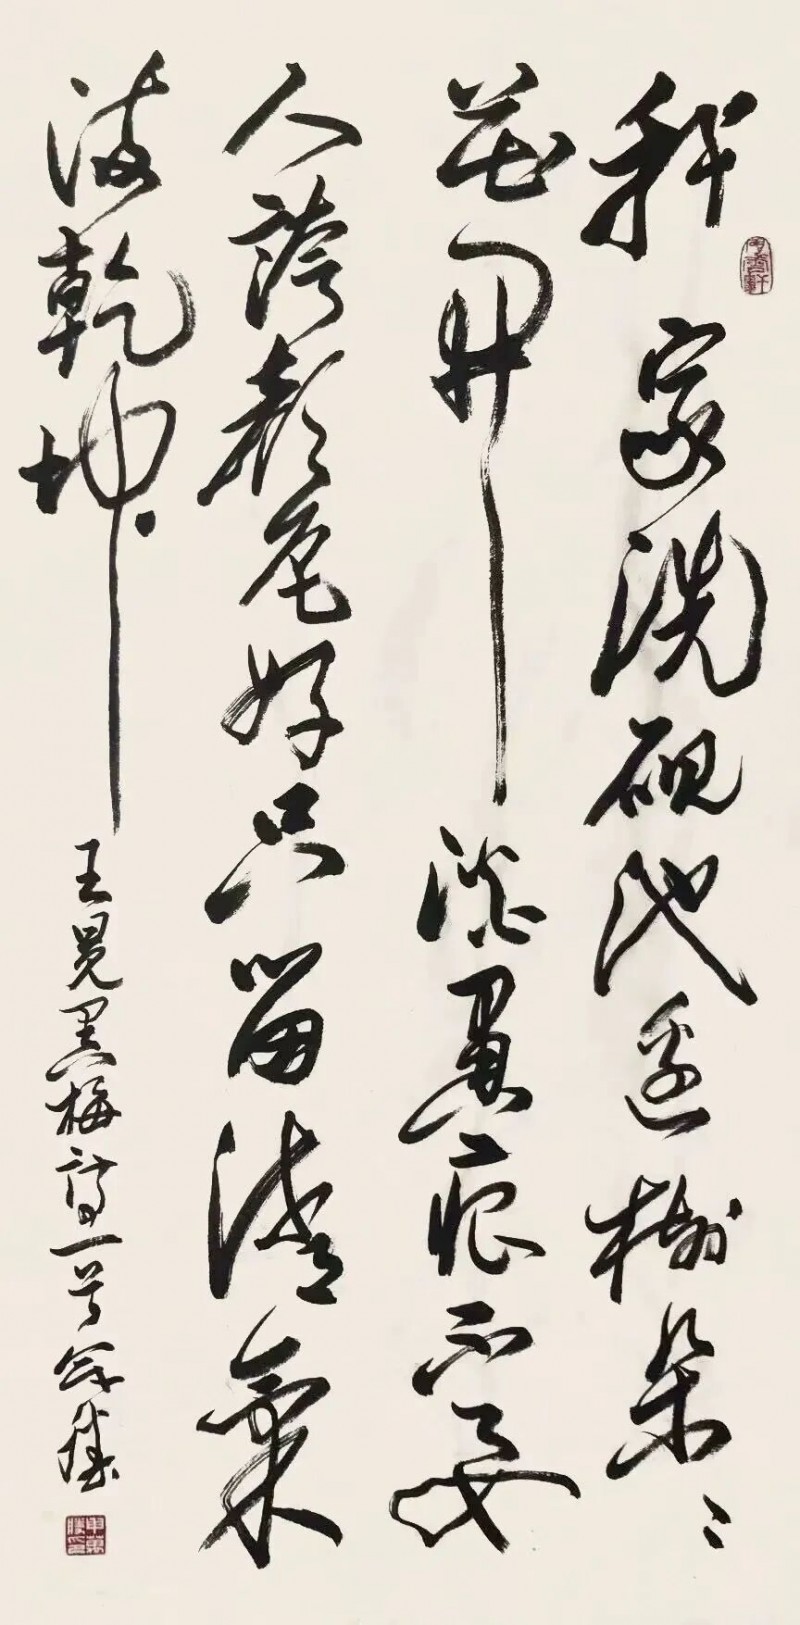 我家洗硯池邊樹朵〻
花開淡墨痕不要
人誇顏色好只留清氣
滿乾坤
王冕墨梅詩一首